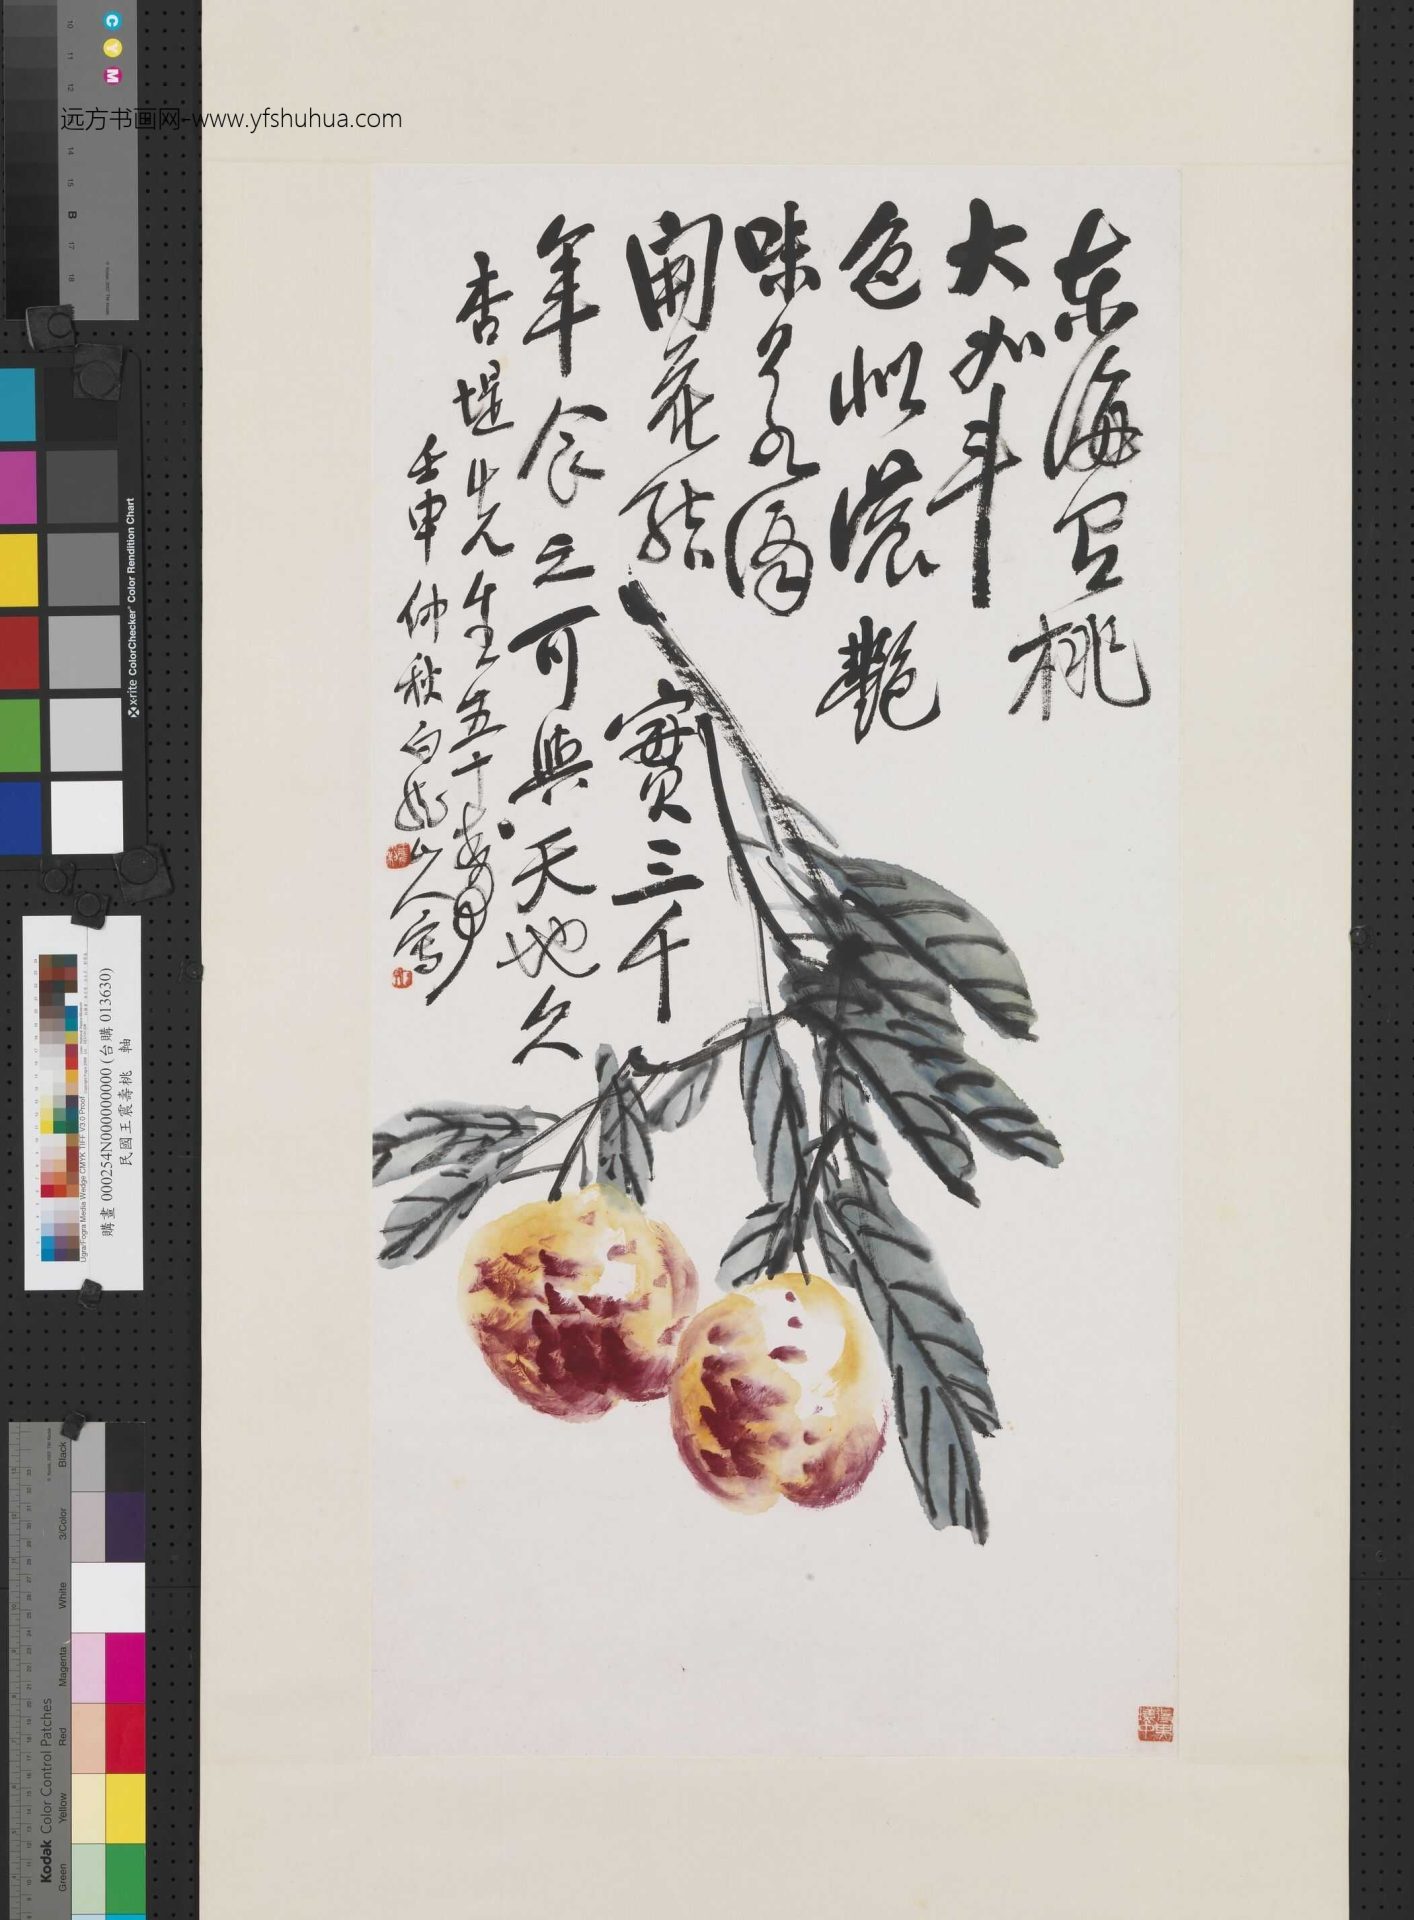 远方书画网-www.yfshuhua.com
东海
桃
大如斗
色似濃艷
味
開花結實三千
年食之可與天地久
杏堤先生五十壽
壬申仲秋白龍山人寫
購畫 000254N000000000 (台購 013630)
民國王震壽桃 軸
x-rite ColorChecker Color Rendition Chart
Ugra/Fogra Media Wedge CMYK TIFF V3.0 Proof
Kodak Color Control Patches
Black
3/Color
White
Magenta
Red
Yellow
Green
C
Y
M
10
11
12
14
15
B
17
18